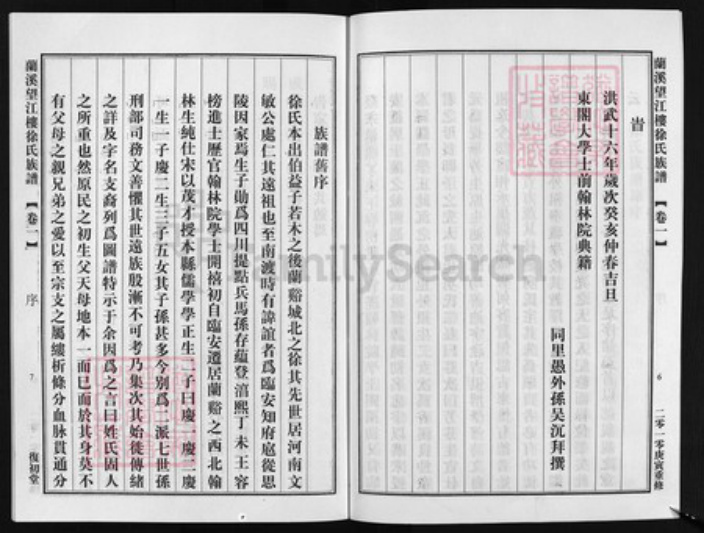 蘭溪望江樓徐氏族譜
【卷一】
序
6
二零一零庚寅重修
旹
洪武十六年歲次癸亥仲春吉旦
東閣大學士前翰林院典籍
同里愚外孫吴沉拜撰
族譜舊序
徐氏本出伯益子若木之後蘭谿城北之徐其先世居河南文
敏公處仁其遠祖也至南渡時有諱誼者爲臨安知府扈從思
陵因家焉生子勛爲四川提點兵馬孫存蘊登淳熙丁未王容
榜進士歷官翰林院學士開禧初自臨安遷居蘭谿之西北翰
林生純仕宋以茂才授本縣儒學學正生二子曰慶一慶二慶
一生一子慶二生三子五女其子孫甚多今别爲二派七世孫
刑部司務文善懼其世遠族殷漸不可考乃集次其始徙傳緒
之詳及字名支裔列爲圖譜特示于余因爲之言曰姓氏固人
之所重也然原民之初生父天母地本一而已而於其身莫不
有父母之親兄弟之愛以至宗支之屬縷析條分血脉貫通分
蘭溪望江樓徐氏族譜
【卷一】
序
7
復初堂
FamilySearch